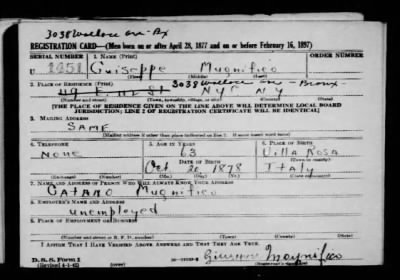 3038 Wallace ave - Bx
REGISTRATION CARD—(Men born on or after April 28, 1877 and on or before February 16, 1897)
SERIAL NUMBER 1. NAME (Print) ORDER NUMBER
U Guiseppe Mugnifico
(First) (Middle) (Last)
3038 Wallace ave - Bronx
2. PLACE OF RESIDENCE (Print)
NYC NY
(Number and street) (Town, township, village, or city) (County) (State)
[THE PLACE OF RESIDENCE GIVEN ON THE LINE ABOVE WILL DETERMINE LOCAL BOARD
JURISDICTION; LINE 2 OF REGISTRATION CERTIFICATE WILL BE IDENTICAL]
3. MAILING ADDRESS
SAME
(Mailing address if other than place indicated on line 2. If same insert word same)
4. TELEPHONE 5. AGE IN YEARS 6. PLACE OF BIRTH
NONE 63 Villa Rosa
DATE OF BIRTH (Town or county)
Oct 20 1878 Italy
(Exchange) (Number) (Mo.) (Day) (Yr.) (State or country)
7. NAME AND ADDRESS OF PERSON WHO WILL ALWAYS KNOW YOUR ADDRESS
Gataro Mugnifico
8. EMPLOYER'S NAME AND ADDRESS
unemployed
9. PLACE OF EMPLOYMENT OR BUSINESS
(Number and street or R. F. D. number) (Town) (County) (State)
I AFFIRM THAT I HAVE VERIFIED ABOVE ANSWERS AND THAT THEY ARE TRUE.
D. S. S. Form 1
(Revised 4-1-42)